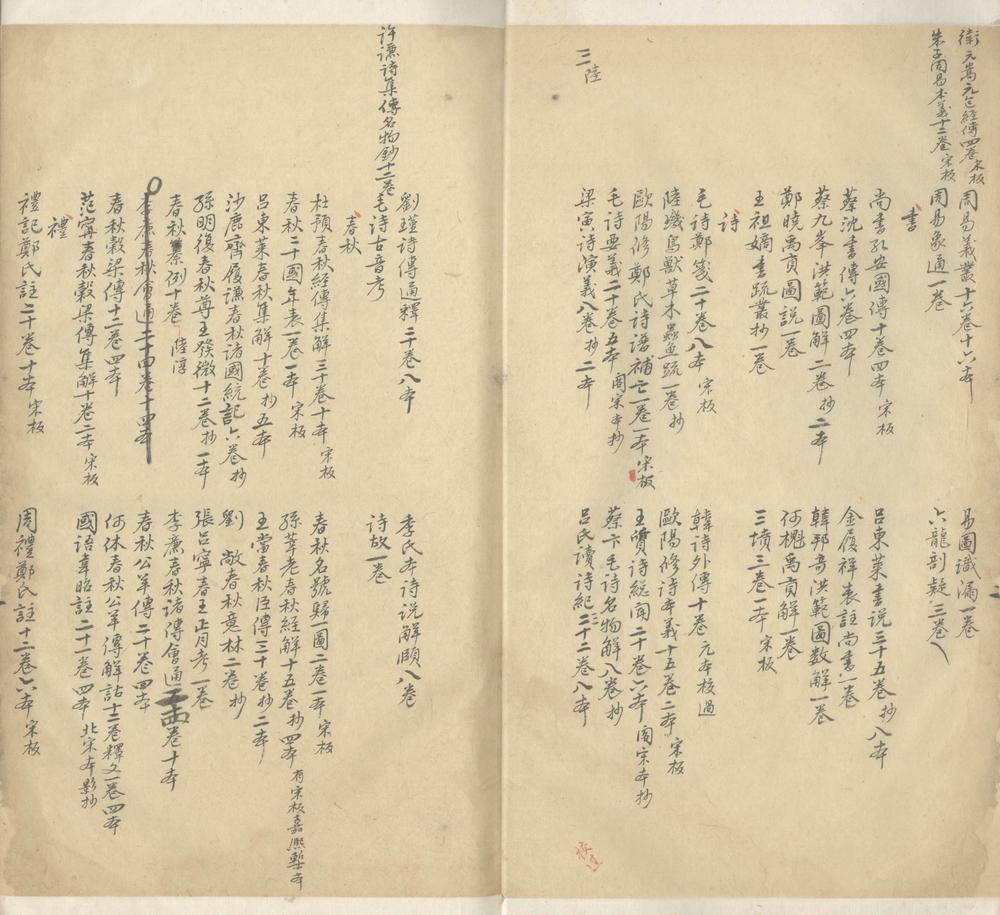 衛元嵩元包經傳四卷 宋板
朱子周易本義十二卷 宋板
周易義叢十六卷十六本
易圖識漏一卷
周易象通一卷
六龍剖疑三卷
書
尚書孔安國傳十卷四本 宋板
呂東萊書説三十五卷抄八本
蔡沈書傳六卷四本
金履祥表註尚書一卷
蔡九峯洪範圖解二卷抄二本
韓邦奇洪範圖数解一卷
鄭曉禹貢圖説一卷
何槻禹貢解一卷
王祖嫡書疏叢抄一卷
三墳三卷一本 宋板
詩
毛詩鄭箋二十卷八本 宋板
韓詩外傳十卷 元本校過
陸璣鳥獸草木蟲魚疏一卷抄
歐陽修詩本義十五卷二本 宋板
歐陽修鄭氏詩譜補亡一卷一本 宋板
王質詩総聞二十卷六本 閣宋本抄
毛詩要義二十卷五本 閣宋本抄
蔡卞毛詩名物解八卷抄
梁寅詩演義八卷抄二本
呂氏讀詩紀三十二卷八本
三陸
校過
許謙詩集傳名物鈔十二卷
劉瑾詩傳通釋二十卷八本
季氏本詩説解頤八卷
毛詩古音考
詩故一卷
春秋
杜預春秋經傳集解三十卷十本 宋板
春秋名號歸一圖二卷一本 宋板
春秋二十國年表一卷一本 宋板
孫莘老春秋經解十五卷抄四本 有宋板嘉熙槧本
呂東莱春秋集解十卷抄五本
王當春秋臣傳三十卷抄二本
沙鹿齊履謙春秋诸國統記六卷抄
劉敞春秋意林二卷抄
孫明復春秋尊王發微十二卷抄一本
張吕寧春王正月考一卷
春秋纂例十卷 陸淳
李廉春秋诸傳會通二十四卷十本
李廉春秋會通二十四卷十四本
春秋公羊傳二十卷四本
春秋穀梁傳十二卷四本
何休春秋公羊傳解詁十二卷釋文一卷四本
范寧春秋穀梁傳集解十卷二本 宋板
國語韋昭註二十一卷四本 北宋本影抄
禮
禮記鄭氏註二十卷十本 宋板
周禮鄭氏註十二卷六本 宋板